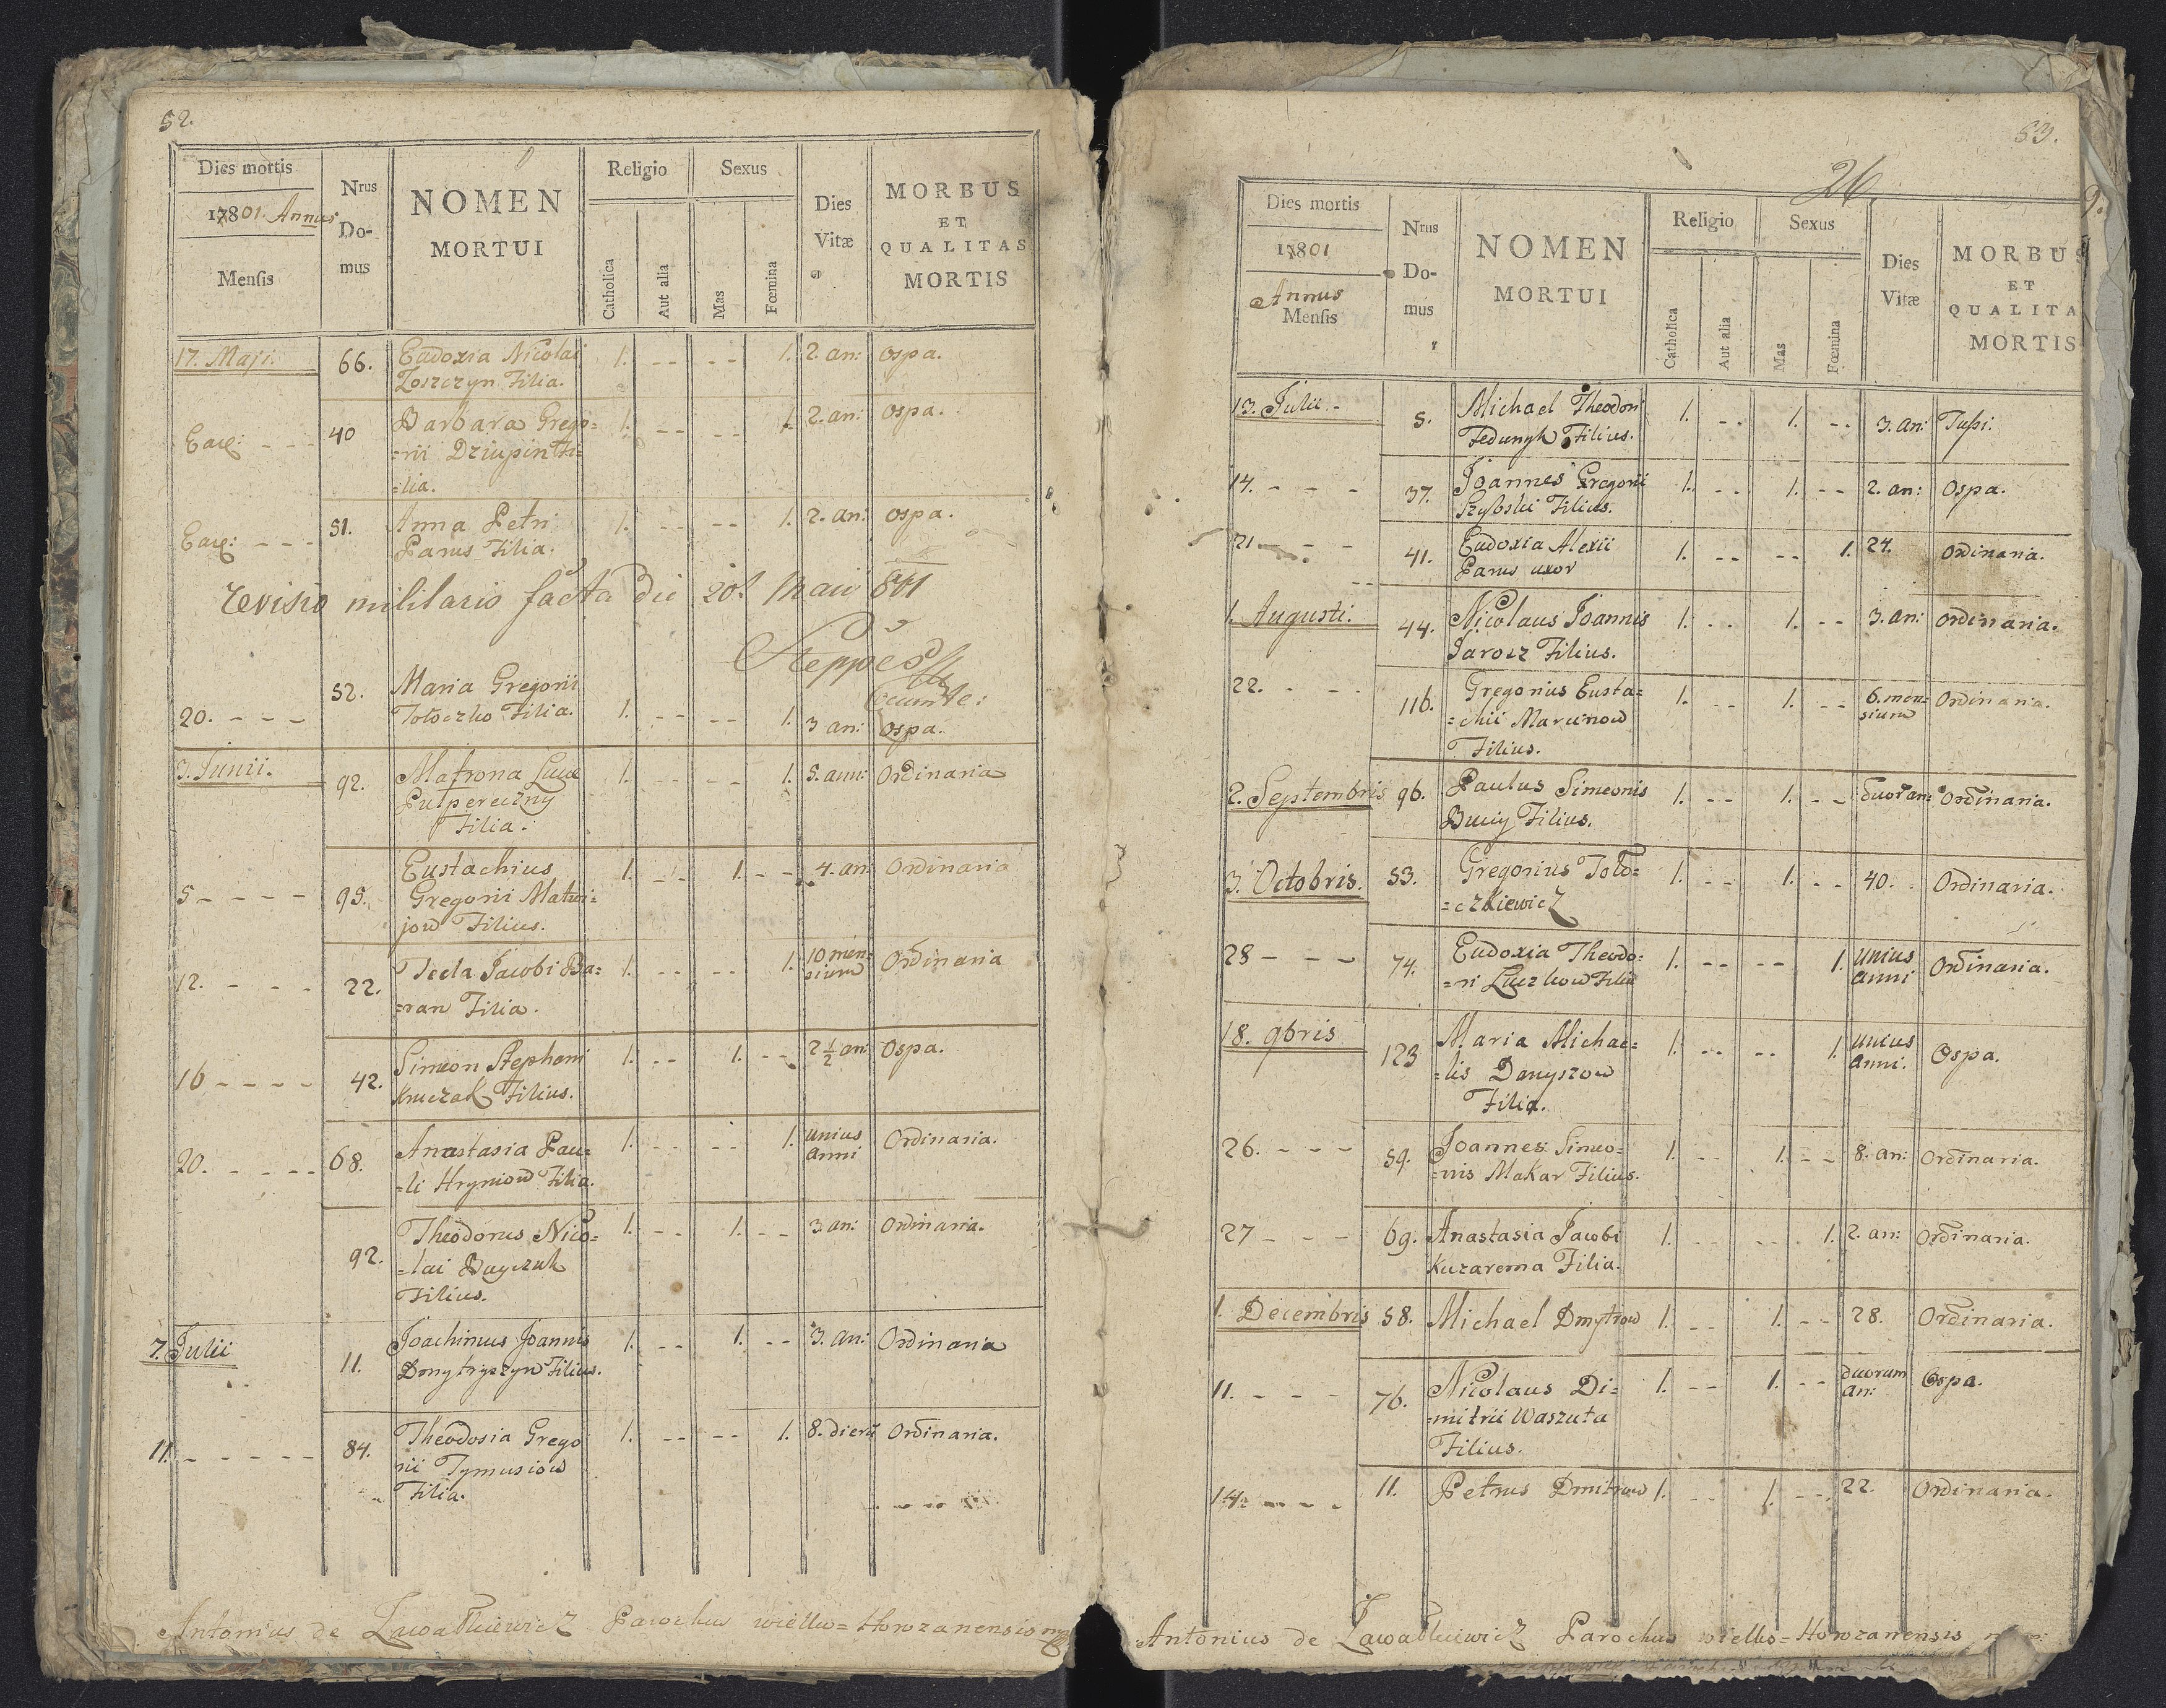 52.
Dies mortis
17801. Annus
Mensis
Nrus
Do-
mus
NOMEN
MORTUI
Religio
Catholica
Aut alia
Sexus
Mas
Fœmina
Dies
Vitæ
MORBUS
ET
QUALITAS
MORTIS
17. Maji. 66. Eudoxia Nicolai 1. -- -- 1. 2. an: Ospa.
Zoszczyn Filia.
Eaq: - - - 40 Barbara Grego= 1. -- -- 1. 2. an: Ospa.
=rii Dziupin Fi=
=lia.
Eaq: - - - 51. Anna Petri 1. -- -- 1. 2. an: Ospa.
Parus Filia.
revisio militaris facta die 20t Maii 801
Steppes
20. - - - 52. Maria Gregorii
Toloczko Filia. 1. -- -- 1. 3 an: Ospa.
3. Junii. 92. Matrona Lucæ 1. -- -- 1. 5. ann: Ordinaria
Pulpereczny
Filia.
5 - - - - 95. Eustachius 1. -- 1. -- 4. an: Ordinaria
Gregorii Matwi=
jow Filius.
12. - - - 22. Tecla Jacobi Ba= 1. -- -- 1. 10 men= Ordinaria
=ran Filia. sium
16 - - - - 42. Simeon Stephani 1. -- 1. -- 2 1/2 an: Ospa.
Kruczak Filius.
20. - - - - 68. Anastasia Pau= 1. -- -- 1. unius Ordinaria.
=li Hryniow Filia. anni
92. Theodorus Nico= 1. -- 1. -- 3 an: Ordinaria.
=lai
Filius.
7. Julii 11. Joachimus Joannis 1. -- 1. -- 3. an: Ordinaria
Dmytryszyn Filius.
11. - - - - - 84. Theodosia Grego 1. -- -- 1. 8. dierū Ordinaria.
rii Tymusiow
Filia.
Antonius de Parochus wielko=Horozanensis mp
53.
26.
Dies mortis
17801
Annus
Mensis
Nrus
Do-
mus
NOMEN
MORTUI
Religio
Catholica
Aut alia
Sexus
Mas
Fœmina
Dies
Vitæ
MORBUS
ET
QUALITA
MORTIS
13. Julii - 5. Michael Theodori 1. -- 1. -- 3. an: Tussi.
Fedunyk Filius.
14. - - - 37. Joannes Gregorii 1. -- 1. -- 2. an: Ospa.
Szybski Filius.
21 - - - 41. Eudoxia Alexii 1. -- -- 1. 24. Ordinaria.
Parus uxor
1. Augusti. 44. Nicolaus Joannis 1. -- 1. -- 3. an: Ordinaria.
Jarosz Filius.
22. - - - 116. Gregorius Eusta= 1. -- 1. -- 6. men= Ordinaria.
=chii Marcinow sium
Filius.
2. Septembris 96. Paulus Simeonis 1. -- 1. -- duor an: Ordinaria.
Filius.
3. Octobris. 53. Gregorius Tolo= 1. -- 1. -- 40. Ordinaria.
=czkiewicz
28 - - - 74. Eudoxia Theodo= 1. -- -- 1. unius Ordinaria.
=ri Luczkow Filia anni
18. 9bris 123 Maria Michae= 1. -- -- 1. unius Ospa.
=lis Danyszow anni.
Filia.
26. - - - 59. Joannes Simeo= 1. -- 1. -- 8. an: Ordinaria.
=nis Makar Filius.
27 - - - 69. Anastasia Jacobi 1. -- -- 1. 2. an: Ordinaria.
Kuzarema Filia.
1. Decembris 58. Michael Dmytrow 1. -- 1. -- 28. Ordinaria.
11. - - - 76. Nicolaus Di= 1. -- 1. -- duorum Ospa.
=mitrii Waszuta an:
Filius.
14. - - - 11. Petrus Dmitrow 1. -- 1. -- 22. Ordinaria.
Antonius de Parochus wielko=Horozanensis